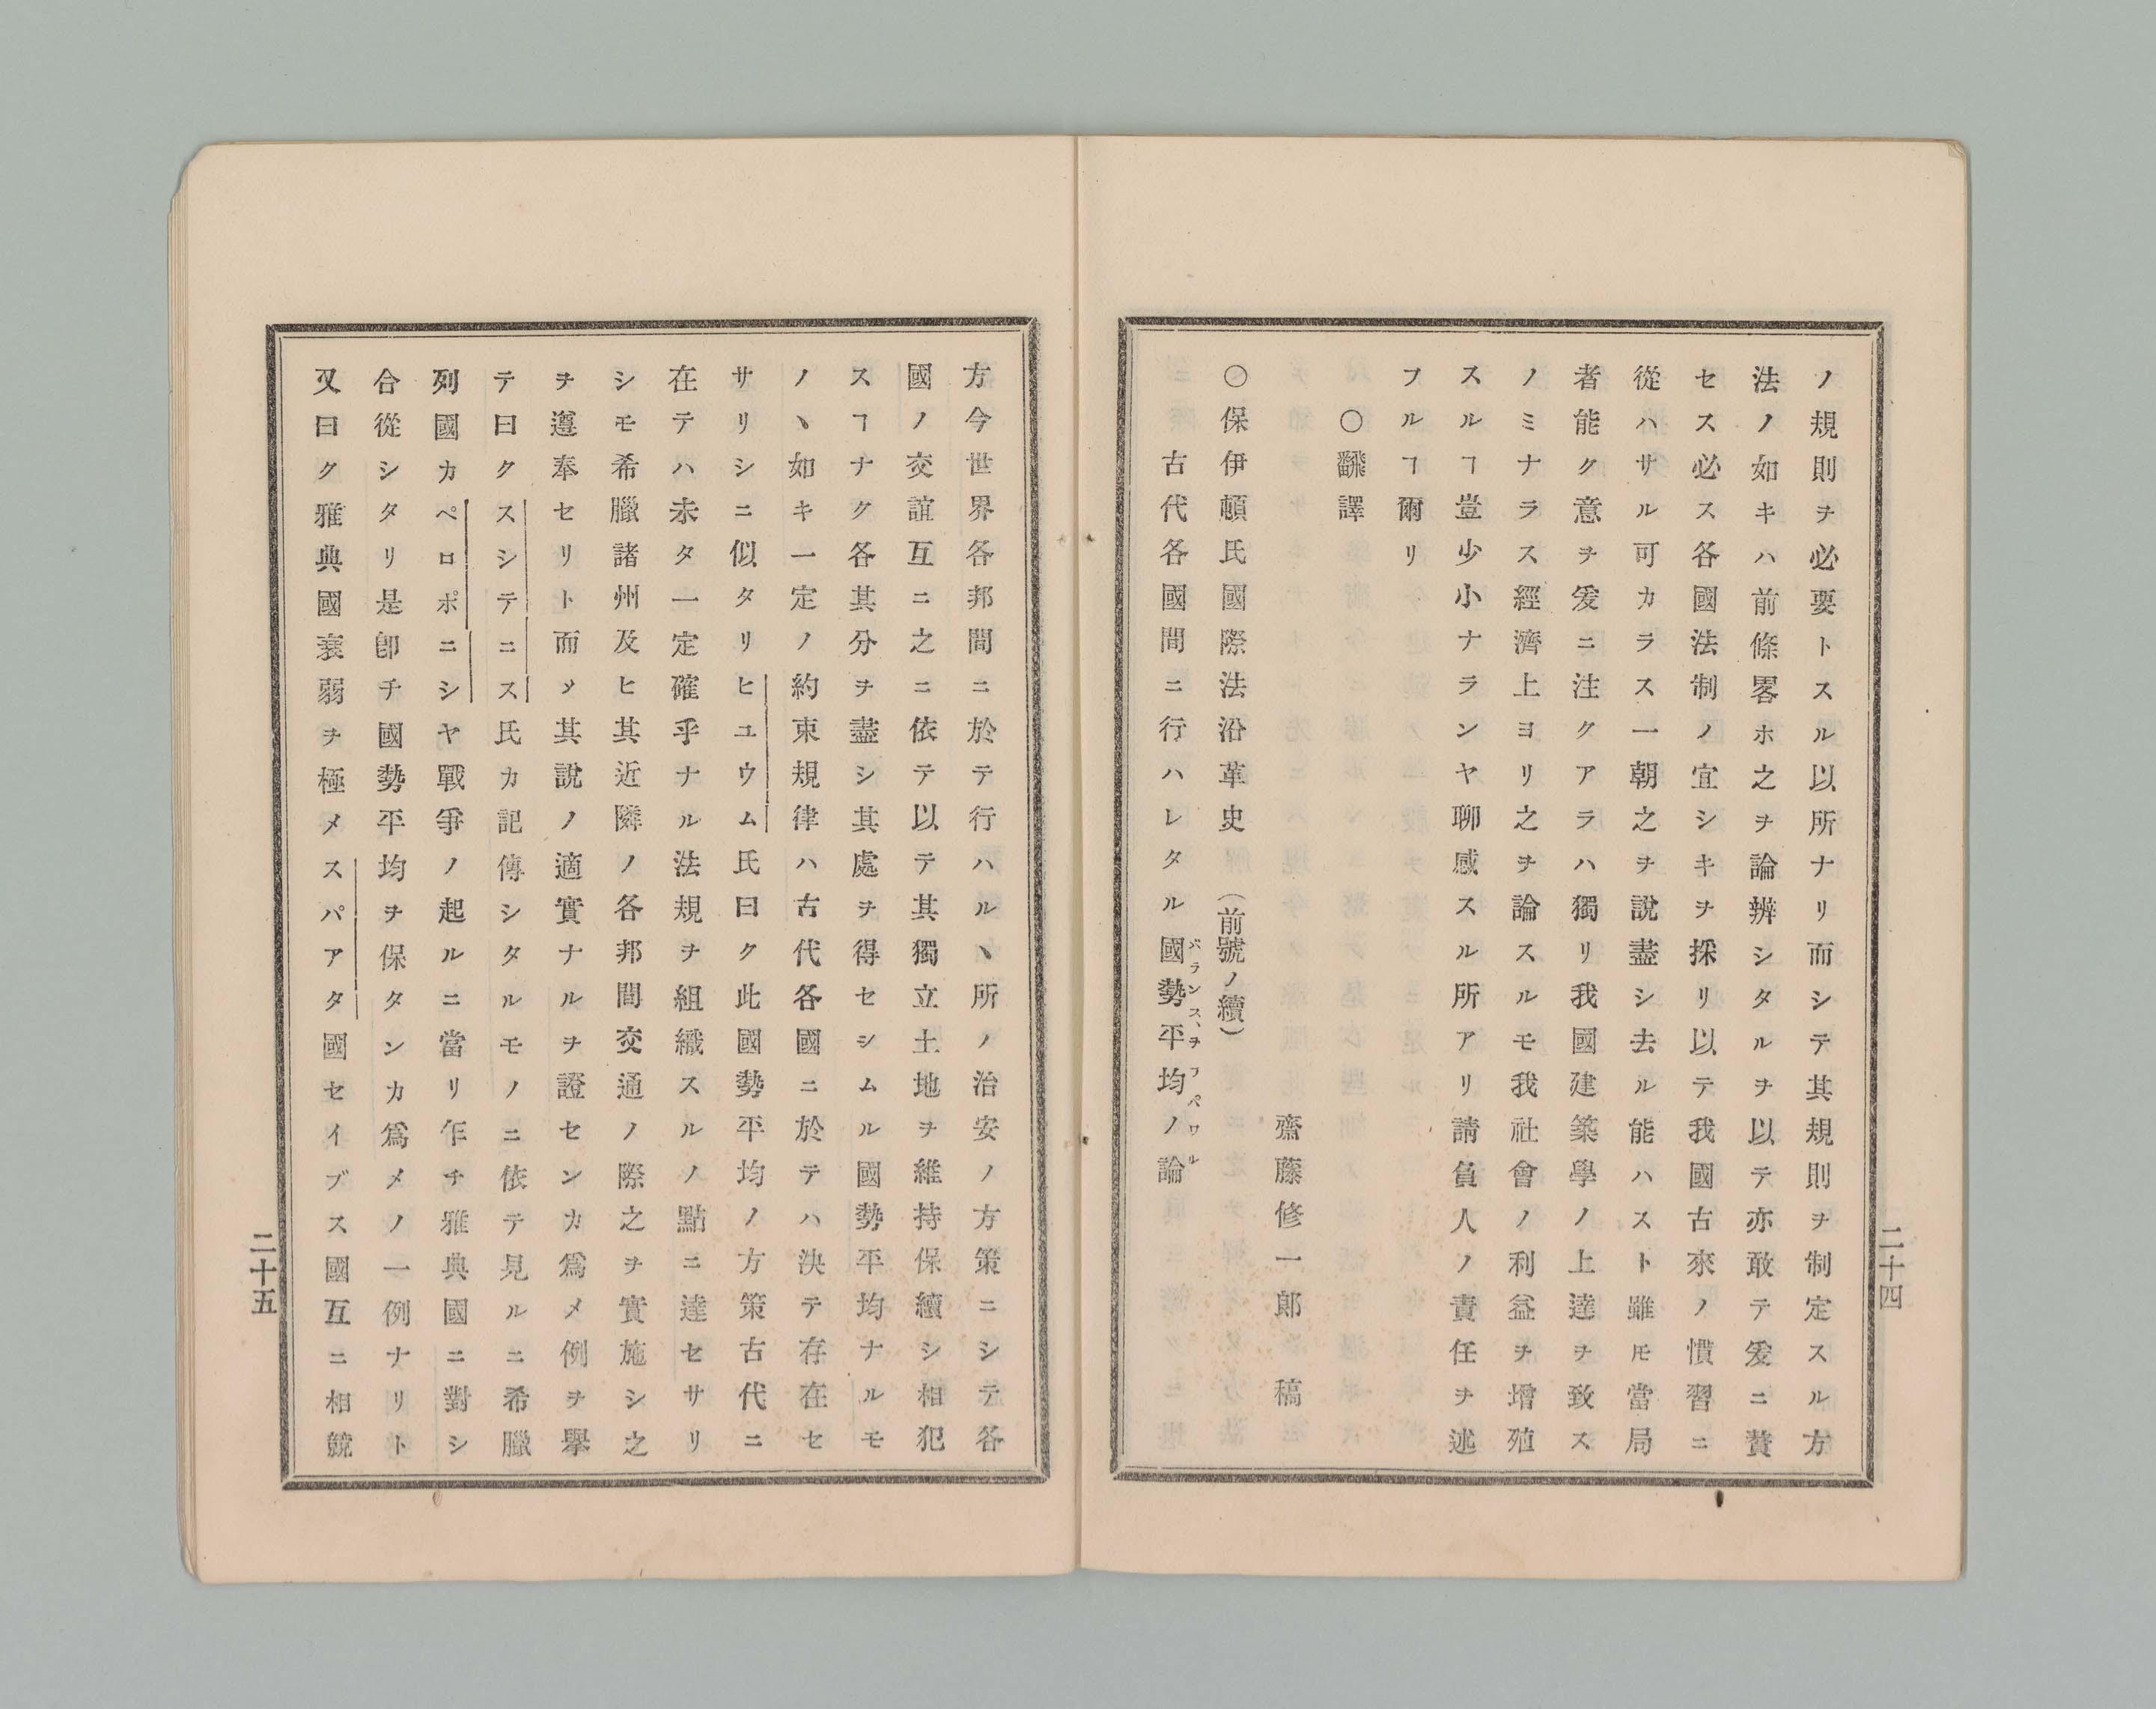 ノ規則ヲ必要トスル以所ナリ而シテ其規則ヲ制定スル方
法ノ如キハ前條畧ホ之ヲ論辨シタルヲ以テ亦敢テ爰ニ贅
セス必ス各國法制ノ宜シキヲ採リ以テ我國古來ノ慣習ニ
從ハサル可カラス一朝之ヲ說盡シ去ル能ハスト雖モ當局
者能ク意ヲ爰ニ注クアラハ獨リ我國建築學ノ上達ヲ致ス
ノミナラス經濟上ヨリ之ヲ論スルモ我社會ノ利益ヲ增殖
スルヿ豈少小ナランヤ聊感スル所アリ請負人ノ責任ヲ述
フルヿ爾リ
〇飜譯
齋藤修一郎 稿
〇保伊頓氏國際法沿革史 (前號ノ續)
古代各國間ニ行ハレタル國勢平均ノ論
バランス、ヲフパワル
二十四
方今世界各邦間ニ於テ行ハルヽ所ノ治安ノ方策ニシテ各
國ノ交誼互ニ之ニ依テ以テ其獨立土地ヲ維持保續シ相犯
スヿナク各其分ヲ盡シ其處ヲ得セシムル國勢平均ナルモ
ノヽ如キ一定ノ約束規律ハ古代各國ニ於テハ決テ存在セ
サリシニ似タリヒユウム氏曰ク此國勢平均ノ方策古代ニ
在テハ未タ一定確乎ナル法規ヲ組織スルノ點ニ達セサリ
シモ希臘諸州及ヒ其近隣ノ各邦間交通ノ際之ヲ實施シ之
ヲ遵奉セリト而〆其說ノ適實ナルヲ證センカ爲メ例ヲ擧
テ曰クスシテニス氏カ記傳シタルモノニ依テ見ルニ希臘
列國カペロポニシヤ戰爭ノ起ルニ當リ乍チ雅典國ニ對シ
合從シタリ是卽チ國勢平均ヲ保タンカ爲メノ一例ナリト
又曰ク雅典國衰弱ヲ極メスパアタ國セイブス國互ニ相競
二十五